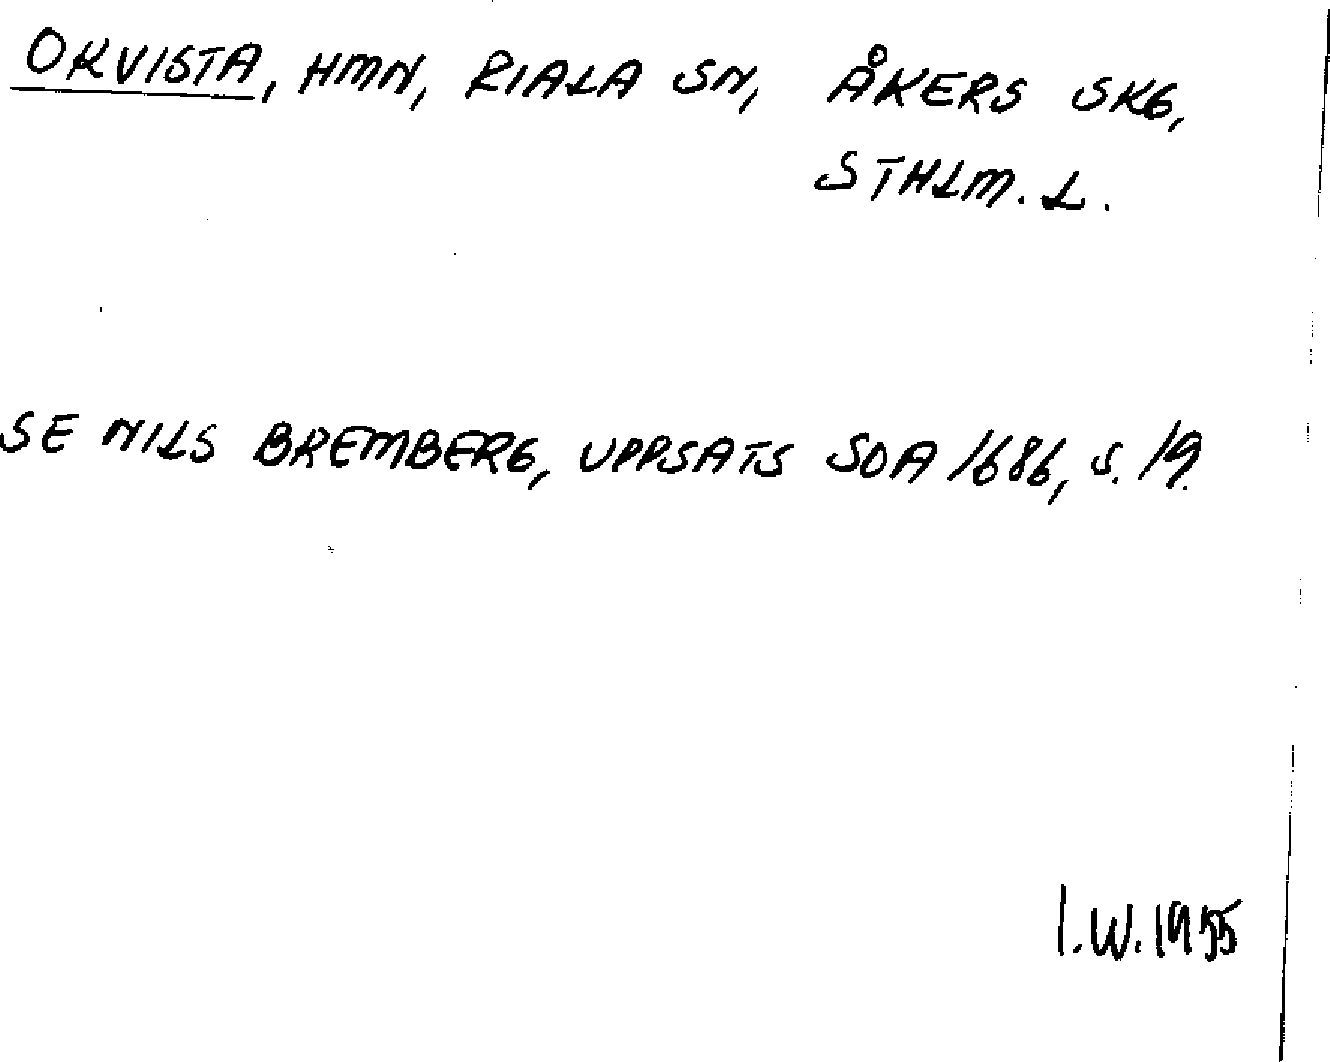 OKVISTA, HMN, RIALA SN, ÅKERS SKG,
STHLM. L.
SE NILS BREMBERG, UPPSATS SOA 1686, S. 19.
I.W. 1955